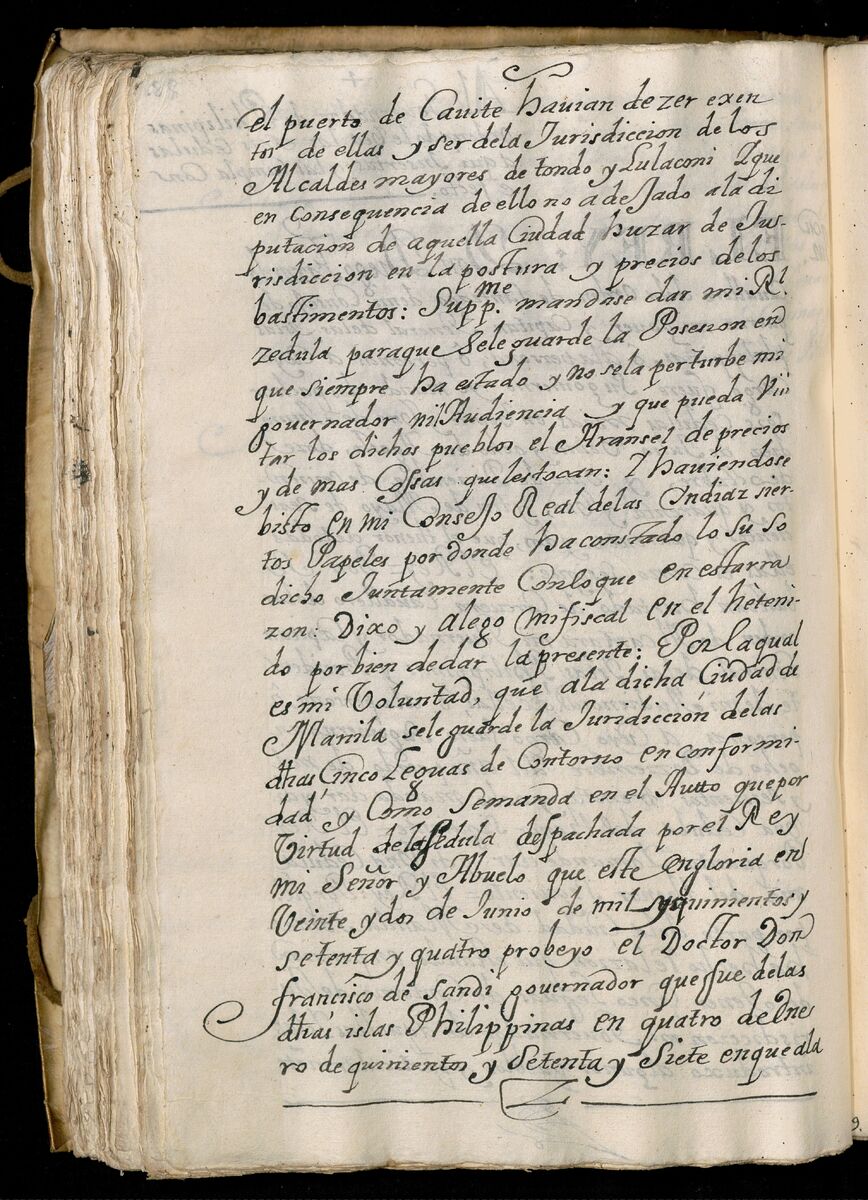 el puerto de Cavite havian de zer exen
tos de ellas y ser dela Jurisdiccion de los
Alcaldes mayores de tondo y Lulaconi Yque
en consequencia de ello no a de Jado ala di
putacion de aquella Ciudad huzar de Jus-
risdiccion en la postura y precios delos
bastimentos: Supp.me mandase dar mi Rl.
zedula paraque seleguarde la Posesion en
que siempre ha estado y no sela perturbe mi
governador nil Audiencia y que pueda Visi
tar los dichos pueblos el Aransel de precios
y de mas Cossas que les tocan: Y haviendose
bisto en mi Consejo Real delas Yndiaz sier-
tos Papeles por donde ha constado lo su so
dicho Juntamente Con lo que en estarra
zon: Dixo y alego mi fiscal en el hèteni-
do por bien de dar la presente: Por la qual
es mi Voluntad, que ala dicha Ciudad de
Manila seleguarde la Juridicción delas
dhas Cinco Leguas de Contorno en conformi-
dad y Como semanda en el Autto que por
Virtud de la Sedula despachada por el Rey
mi Señor y Abuelo que este en gloria en
Veinte y dos de Junio de mil y quinientos y
setenta y quatro probeyo el Doctor Don
francisco de sandi governador que fue delas
dhas islas Philippinas en quatro de Ene
ro de quinientos y Setenta y Siete en que ala